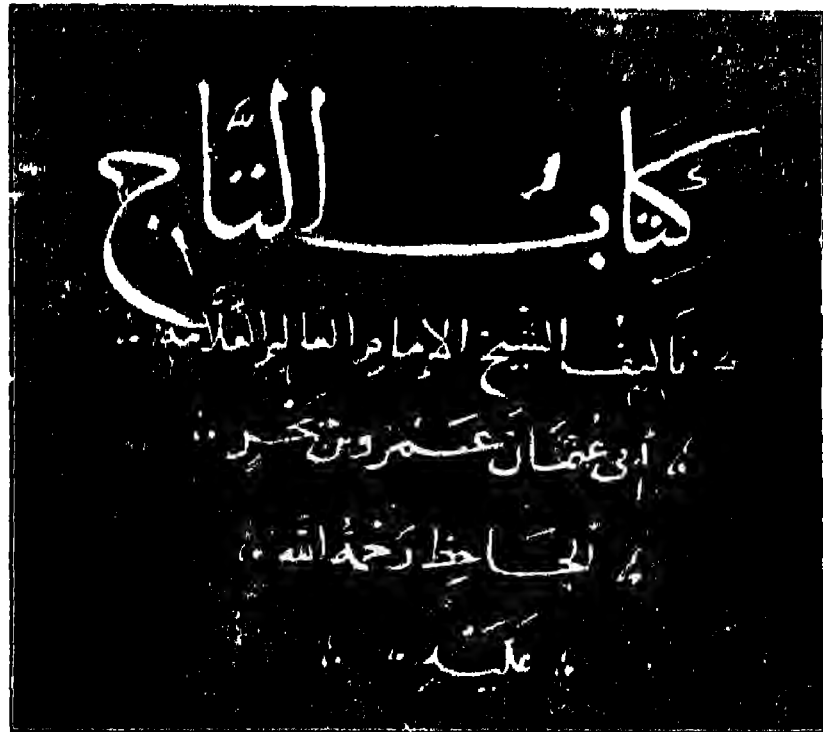 كِتَابُ التَّاج
تاليف الشيخ الإمام العالم العلّامة
أبى عُثمَانَ عَمْرو بن بَحْرٍ
الجَاحِظ رَحْمةُ الله
عَلَيْهِ